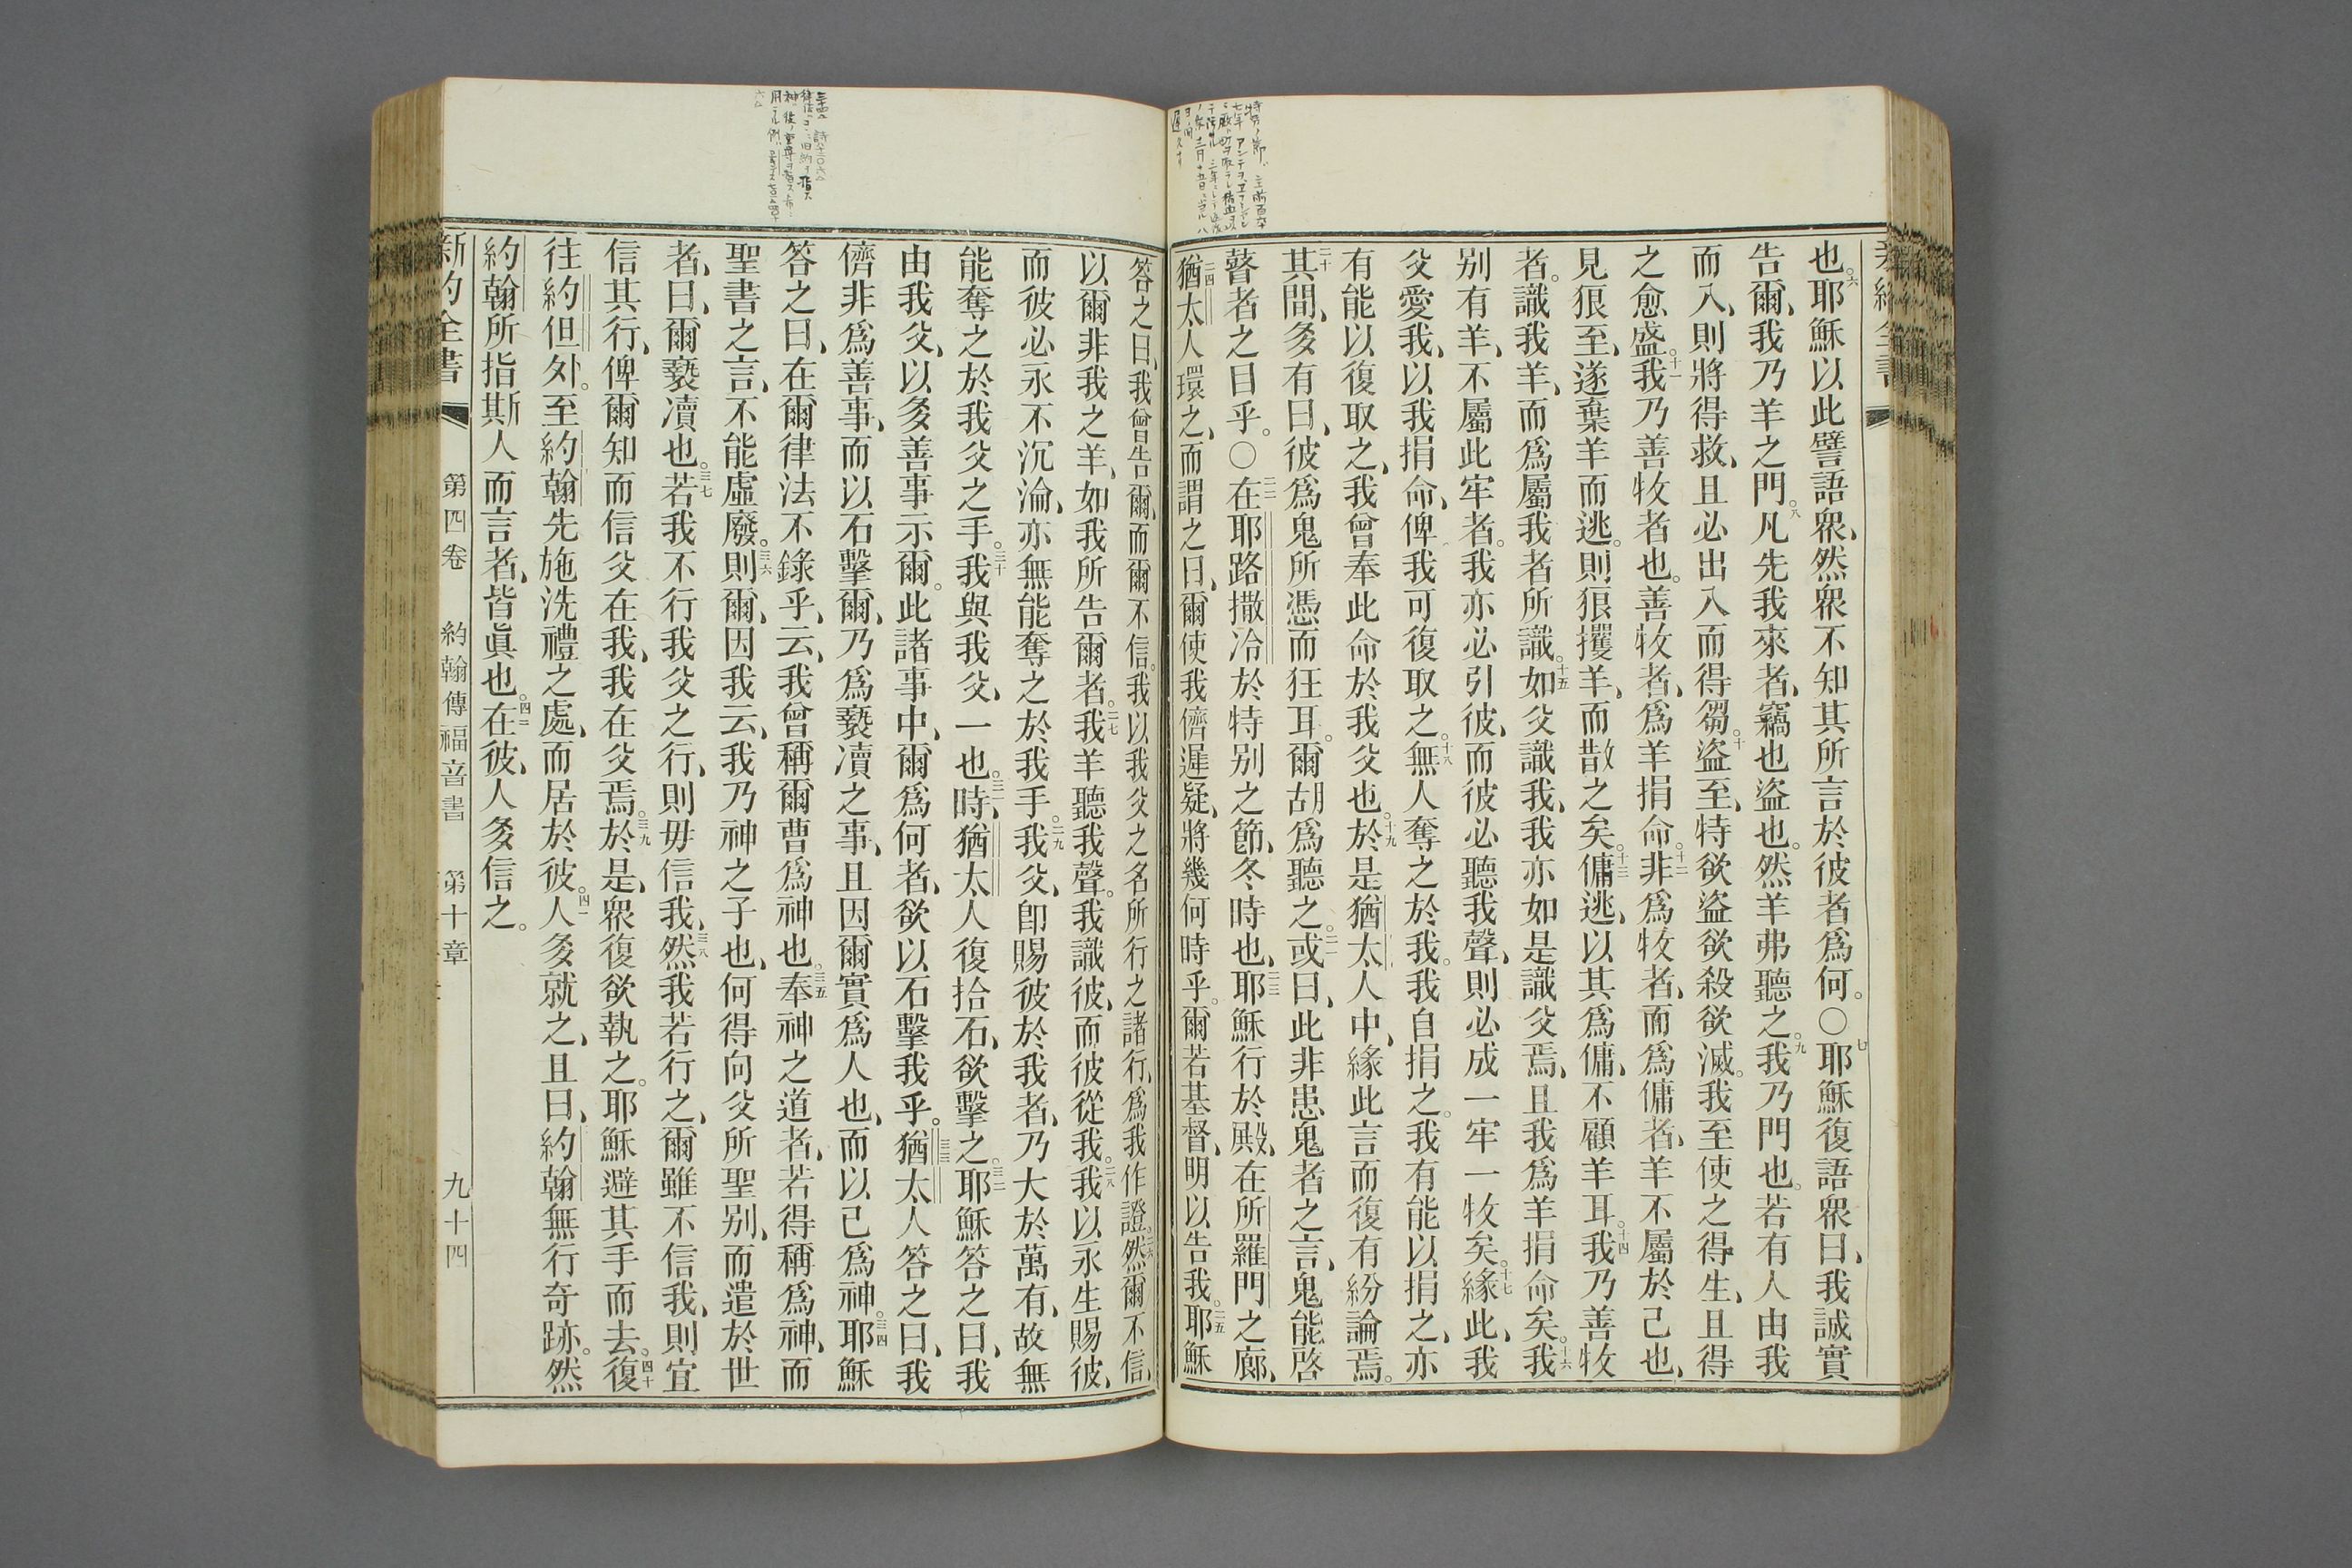 也六耶穌以此譬語衆、然衆不知其所言於彼者爲何。〇七耶穌復語衆曰、我誠實
告爾、我乃羊之門。八凡先我來者、竊也盜也。然羊弗聽之。九我乃門也。若有人由我
而入、則將得救、且必出入而得芻。十盜至、特欲盜欲殺欲滅。我至使之得生、且得
之愈盛。十一我乃善牧者也。善牧者、爲羊捐命。十二非爲牧者、而爲傭者、羊不屬於己也、
見狼至、遂棄羊而逃。則狼攫羊、而散之矣。十三傭逃、以其爲傭、不顧羊耳。十四我乃善牧
者。識我羊、而爲屬我者所識。十五如父識我、我亦如是識父焉、且我爲羊捐命矣。十六我
别有羊、不屬此牢者。我亦必引彼、而彼必聽我聲、則必成一牢一牧矣。十七緣此、我
父愛我、以我捐命、俾我可復取之。十八無人奪之於我。我自捐之。我有能以捐之、亦
有能以復取之、我曾奉此命於我父也。十九於是猶太人中、緣此言而復有紛論焉。
二十其間、多有曰、彼爲鬼所憑而狂耳。爾胡爲聽之。二一或曰、此非患鬼者之言、鬼能啓
瞽者之目乎。〇二二在耶路撒冷於特别之節、冬時也、二三耶穌行於殿、在所羅門之廊、
二四猶太人環之、而謂之曰、爾使我儕遲疑、將幾何時乎。爾若基督、明以告我。二五耶穌
答之曰、我曾告爾、而爾不信。我以我父之名所行之諸行、爲我作證。二六然爾不信、
以爾非我之羊、如我所告爾者。二七我羊聽我聲。我識彼、而彼從我。二八我以永生賜彼、
而彼必永不沉淪、亦無能奪之於我手。二九我父、卽賜彼於我者、乃大於萬有、故無
能奪之於我父之手。三十我與我父、一也。三一時、猶太人復拾石、欲擊之。三二耶穌答之曰、我
由我父、以多善事示爾。此諸事中、爾爲何者、欲以石擊我乎。三三猶太人答之曰、我
儕非爲善事、而以石擊爾、乃爲褻瀆之事、且因爾實爲人也、而以己爲神。三四耶穌
答之曰、在爾律法不錄乎、云、我曾稱爾曹爲神也。三五奉神之道者、若得稱爲神、而
聖書之言、不能虛廢。三六則爾、因我云、我乃神之子也、何得向父所聖别、而遣於世
者、曰、爾褻瀆也。三七若我不行我父之行、則毋信我、三八然我若行之、爾雖不信我、則宜
信其行、俾爾知而信父在我、我在父焉。三九於是、衆復欲執之。耶穌避其手而去。四十復
往約但外。至約翰先施洗禮之處、而居於彼。四一人多就之、且曰、約翰無行奇跡。然
約翰所指斯人而言者、皆眞也。四二在彼、人多信之。
新約全書 第四卷 約翰傳福音書 第十章 九十四